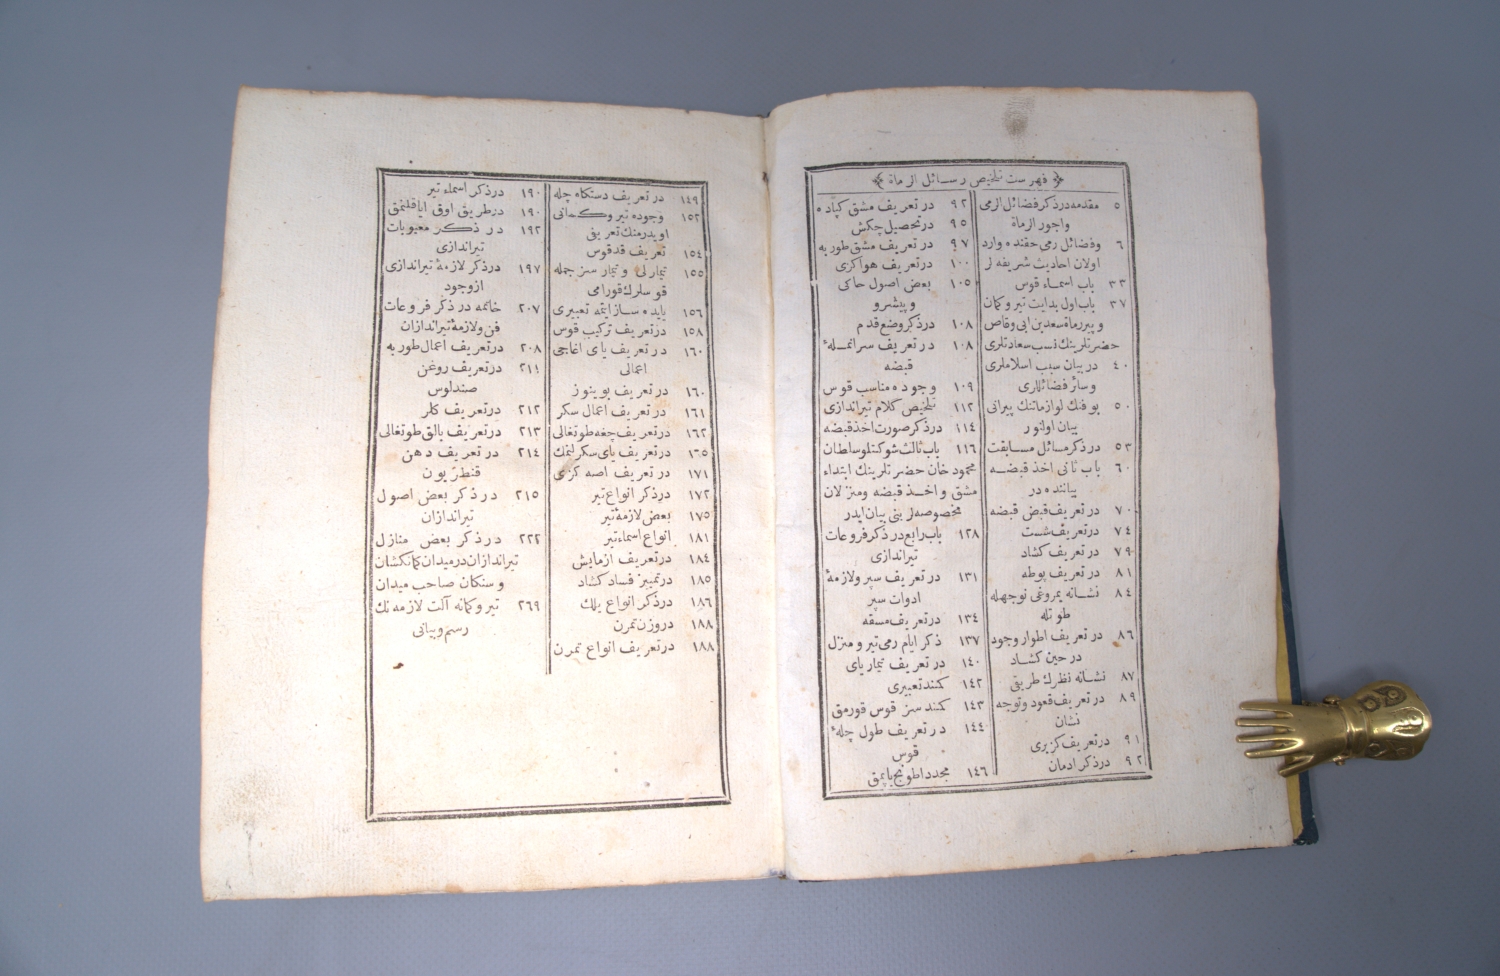 فهرست تلخیص رسائل الرماة
٥ مقدمه در ذکر فضائل الرمی
واجور الرماة
٦ وفضائل رمی حقنده وارد
اولان احادیث شریفه لر
٣٣ باب اسماء قوس
٣٧ باب اول بدایت تیر و کمان
و پیر رماة سعد بن ابی وقاص
حضرتلرینك نسب سعادتلری
٤٠ در بیان سبب اسلاملری
وسائر فضائللری
٥٠ بو فنك لوازماتنك پیرانی
بیان اولنور
٥٣ در ذکر مسائل مسابقت
٦٠ باب ثانی اخذ قبضه
بیاننده در
٧٠ در تعریف قبض قبضه
٧٤ در تعریف شست
٧٩ در تعریف کشاد
٨١ در تعریف پوطه
٨٤ نشانه یمروغی نوجهله
طوتله
٨٦ در تعریف اطوار وجود
در حین کشاد
٨٧ نشانه نظرك طریقی
٨٩ در تعریف قعود وتوجه
نشان
٩١ در تعریف کزبری
٩٢ در ذکر ادمان
٩٢ در تعریف مشق کپاده
٩٥ در تحصیل چکش
٩٧ در تعریف مشق طوربه
١٠٠ در تعریف هوا کری
١٠٥ بعض اصول خاکی
و پیشرو
١٠٨ در ذکر وضع قدم
١٠٨ در تعریف سر انملهٔ
قبضه
١٠٩ وجوده مناسب قوس
١١٢ تلخیص کلام تیراندازی
١١٤ در ذکر صورت اخذ قبضه
١١٦ باب ثالث شوکتلو سلطان
محمود خان حضرتلرینك ابتداء
مشق و اخذ قبضه ومنزلان
مخصوصه لرینی بیان ایدر
١٢٨ باب رابع در ذکر فروعات
تیراندازی
١٣١ در تعریف سپر ولازمهٔ
ادوات سپر
١٣٤ در تعریف مسقه
١٣٧ ذکر ایام رمی تیر و منزل
١٤٠ در تعریف تیمار یای
١٤٢ کمند تعبیری
١٤٣ کمند سز قوس قورمق
١٤٤ در تعریف طول چلهٔ
قوس
١٤٦ مجددا طونج یاپمق
١٤٩ در تعریف دستکاه چله
١٥٢ وجوده تیر و کمانی
اویدرمنك تعریفی
١٥٤ تعریف قد قوس
١٥٥ تیمارلی و تیمارسز جمله
قوسلرك قورامی
١٥٦ پایده ساز ایتمه تعبیری
١٥٨ در تعریف ترکیب قوس
١٦٠ در تعریف یای اغاجی
اعمالی
١٦٠ در تعریف بوینوز
١٦١ در تعریف اعمال سکر
١٦٢ در تعریف چغه طوتغالی
١٦٥ در تعریف یای سکرلتمك
١٧١ در تعریف اصه کزی
١٧٢ در ذکر انواع تیر
١٧٥ بعض لازمهٔ تیر
١٨١ انواع اسماء تیر
١٨٤ در تعریف ازمایش
١٨٥ در تمییز فساد کشاد
١٨٦ در ذکر انواع یلك
١٨٨ در وزن تمرن
١٨٨ در تعریف انواع تمرن
١٩٠ در ذکر اسماء تیر
١٩٠ در طریق اوق ایاقلنمق
١٩٢ در ذکر معیوبات
تیراندازی
١٩٧ در ذکر لازمهٔ تیراندازی
از وجود
٢٠٧ خاتمه در ذکر فروعات
فن ولازمهٔ تیراندازان
٢٠٨ در تعریف اعمال طوربه
٢١١ در تعریف روغن
صندلوس
٢١٢ در تعریف کلر
٢١٣ در تعریف بالق طوتغالی
٢١٤ در تعریف دهن
قنطریون
٢١٥ در ذکر بعض اصول
تیراندازان
٢٢٢ در ذکر بعض منازل
تیراندازان در میدان کمانکشان
و سنکان صاحب میدان
٢٦٩ تیر و کمانه آلت لازمه نك
رسم و بیانی